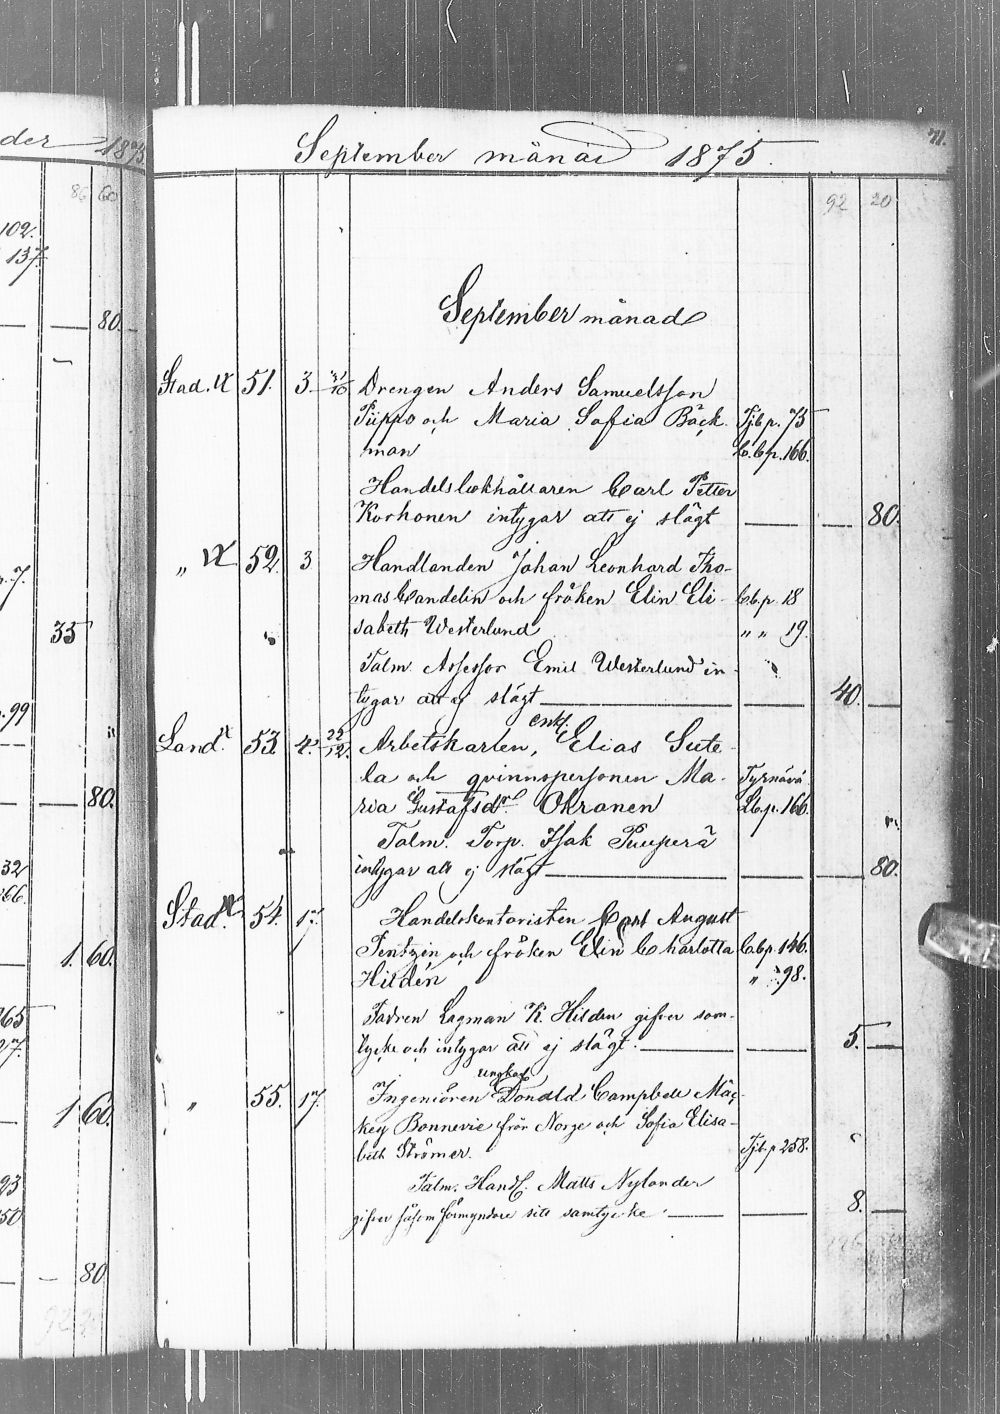 der 1875
86 60
102.
137.
80.
p. 7.
35
p. 99
80.
32
66.
1. 60.
265
27.
1 60.
93
50
80
71.
September månad 1875.
92 20
September månad
Stad. 51. 3 31/10 Drengen Anders Samuelsson
Piippo och Maria Sofia Bäck- Tjb p. 75
man C.b p. 166.
Handelsbokhållaren Carl Petter
Korhonen intygar att ej slägt — — 80.
„ 52. 3 Handlanden Johan Leonhard Tho-
mas Candelin och fröken Elin Eli- C.b. p. 18
sabeth Westerlund „ „ 19.
Talm. Assessor Emil Westerlund in-
tygar att ej slägt — — 40. —
Land. 53. 4. 22/12. Arbetskarlen, enkl. Elias Sute-
la och qvinnspersonen Ma- Tyrnävä
ria Gustafsdr. Okranen L.b.p. 166.
Talm. Torp. Isak Puuperä
intygar att ej slägt — — — 80.
Stad. 54. 17. Handelskontoristen Carl August
Pentzin och fröken Elin Charlotta C.b p. 146.
Hildén „ „ 98.
Fadren Lagman K. Hildén gifver sam-
tycke och intygar att ej slägt. — — 5. —
„ 55. 17. Ingeniören ungkarl Donald Campbell Mac-
key Bonnevie från Norge och Sofia Elisa-
beth Strömer. Tjb. p 258.
Talm. Handl. Matts Nylander
gifver såsom förmyndare sitt samtycke. — — 8. —